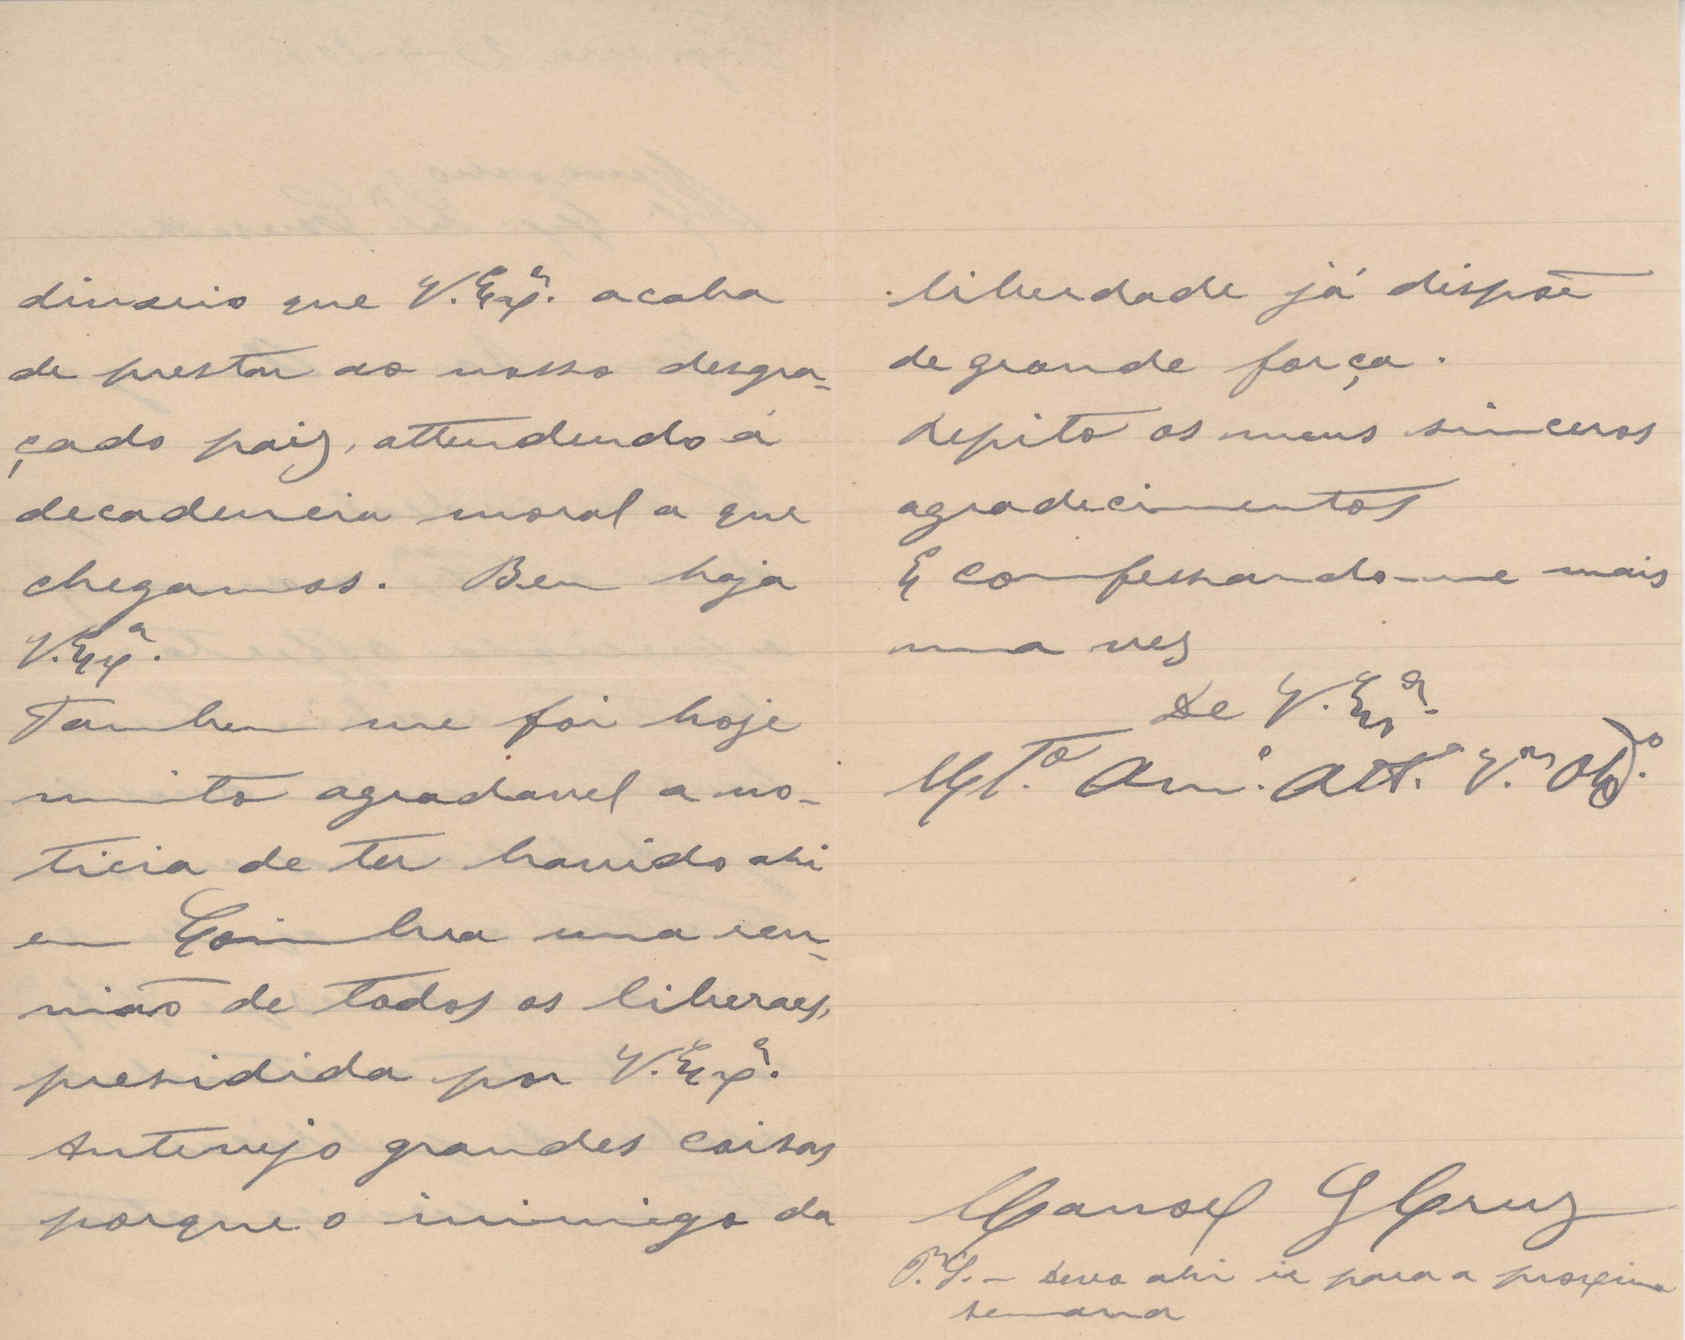 dinario que V. Exª. acaba
de prestar ao nosso desgra-
çado paiz, attendendo á
decadencia moral a que
chegamos. Bem haja
V. Exª.
Tambem me foi hoje
muito agradavel a no-
ticia de ter havido ahi
em Coimbra uma reu-
nião de todos os liberaes,
presidida por V. Exª.
Antevejo grandes coisas
porque o inimigo da
liberdade já dispõe
de grande força.
Repito os meus sinceros
agradecimentos
E confessando-me mais
uma vez
De V. Exª.
Mtº. Amº. Attº. Vºʳ Obdº.
Manoel G Cruz
P. S. - Devo ahi ir para a proxima
semana